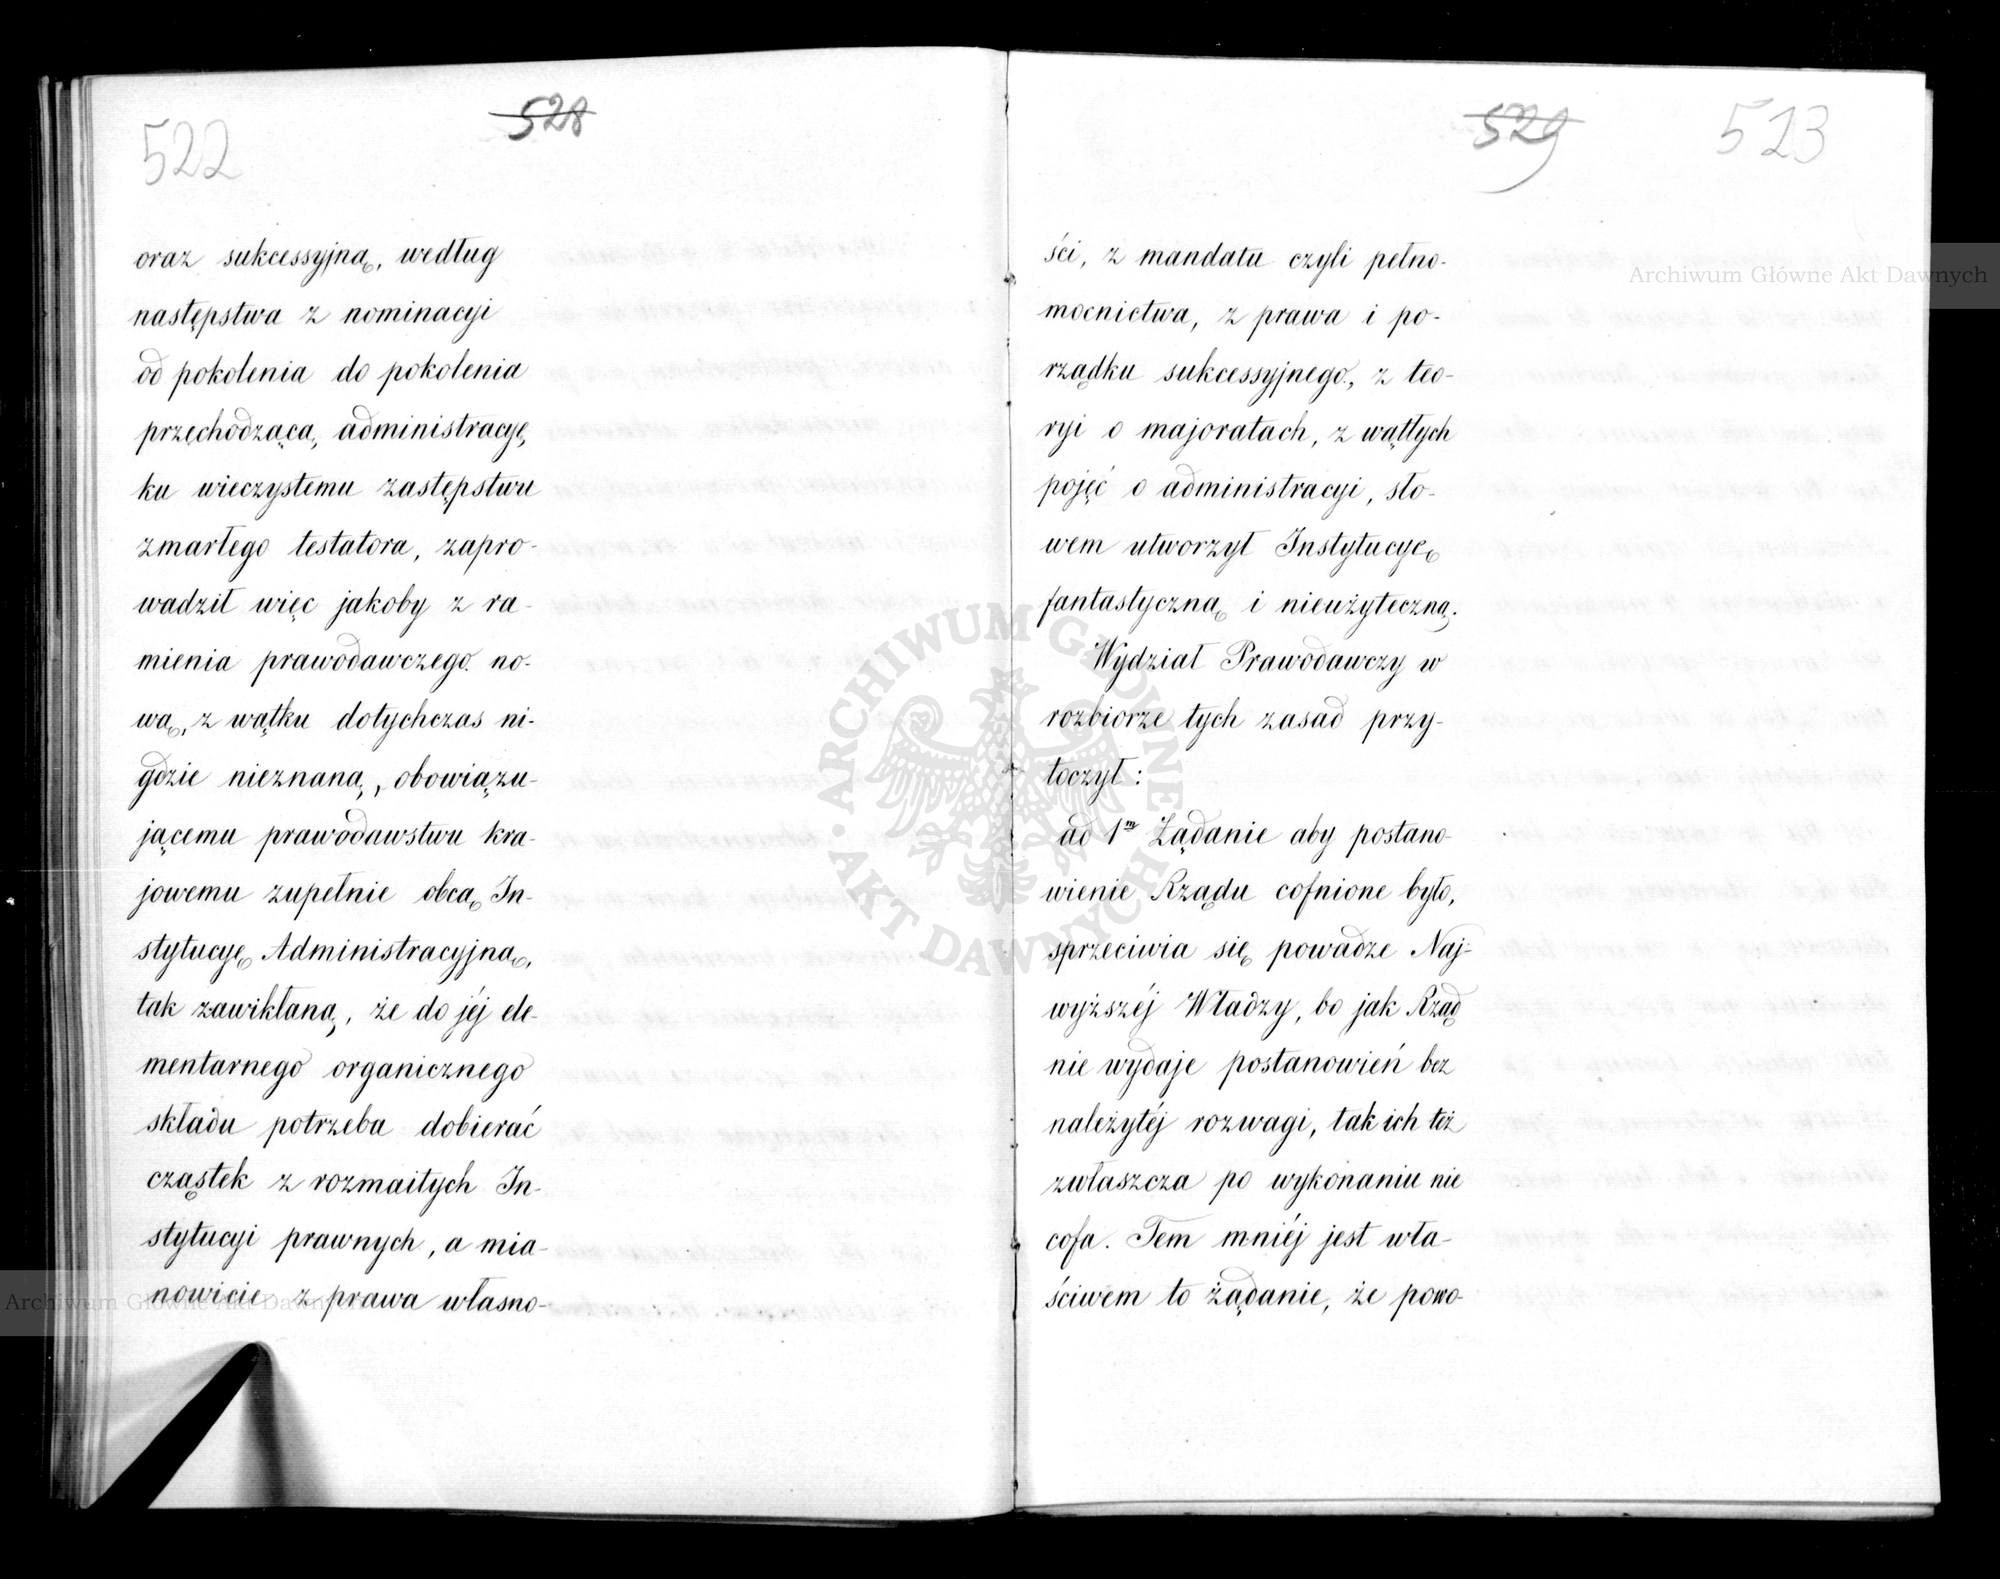 522
528
oraz sukcessyjną, według
następstwa z nominacyi
od pokolenia do pokolenia
przechodzącą, administracyę,
ku wieczystemu zastępstwu
zmarłego testatora, zapro-
wadził więc jakoby z ra-
mienia prawodawczego no-
wą, z wątku dotychczas ni-
gdzie nieznaną, obowiązu-
jącemu prawodawstwu kra-
jowemu zupełnie obcą In-
stytucyę Administracyjną,
tak zawikłaną, że do jéj ele-
mentarnego organicznego
składu potrzeba dobierać
cząstek z rozmaitych In-
stytucyi prawnych, a mia-
nowicie z prawa własno-
529
523
ści, z mandatu czyli pełno-
mocnictwa, z prawa i po-
rządku sukcessyjnego, z teo-
ryi o majoratach, z wątłych
pojęć o administracyi, sło-
wem utworzył Instytucyę
fantastyczną i nieużyteczną.
Wydział Prawodawczy w
rozbiorze tych zasad przy-
toczył:
ad 1m Żądanie aby postano-
wienie Rządu cofnione było,
sprzeciwia się powadze Naj-
wyższéj Władzy, bo jak Rząd
nie wydaje postanowień bez
należytéj rozwagi, tak ich też
zwłaszcza po wykonaniu nie
cofa. Tem mniéj jest wła-
ściwem to żądanie, że powo-
Archiwum Główne Akt Dawnych
ARCHIWUM GŁÓWNE
AKT DAWNYCH
Archiwum Główne Akt Dawnych